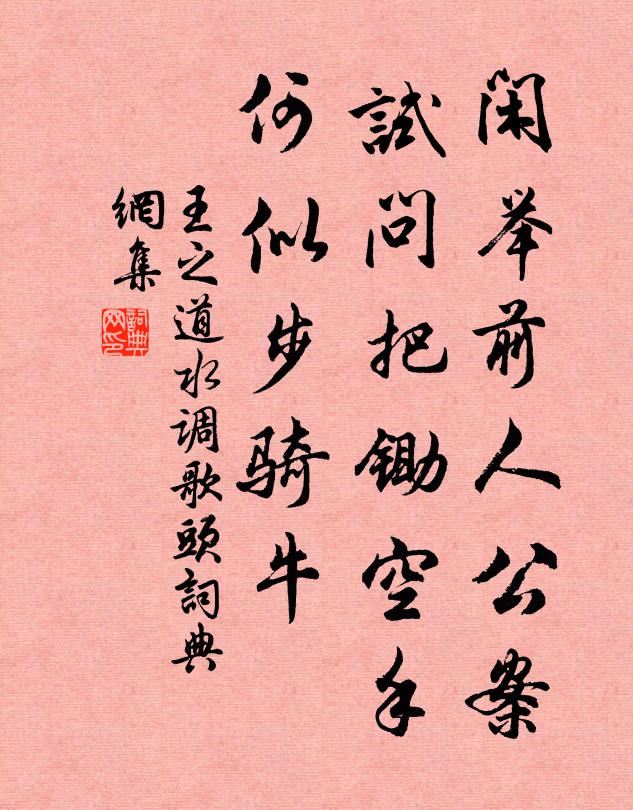 閑举前人公案
試問把鋤空手
何似步骑牛
王之道水调歌頭詞典
網集
詞典
网印